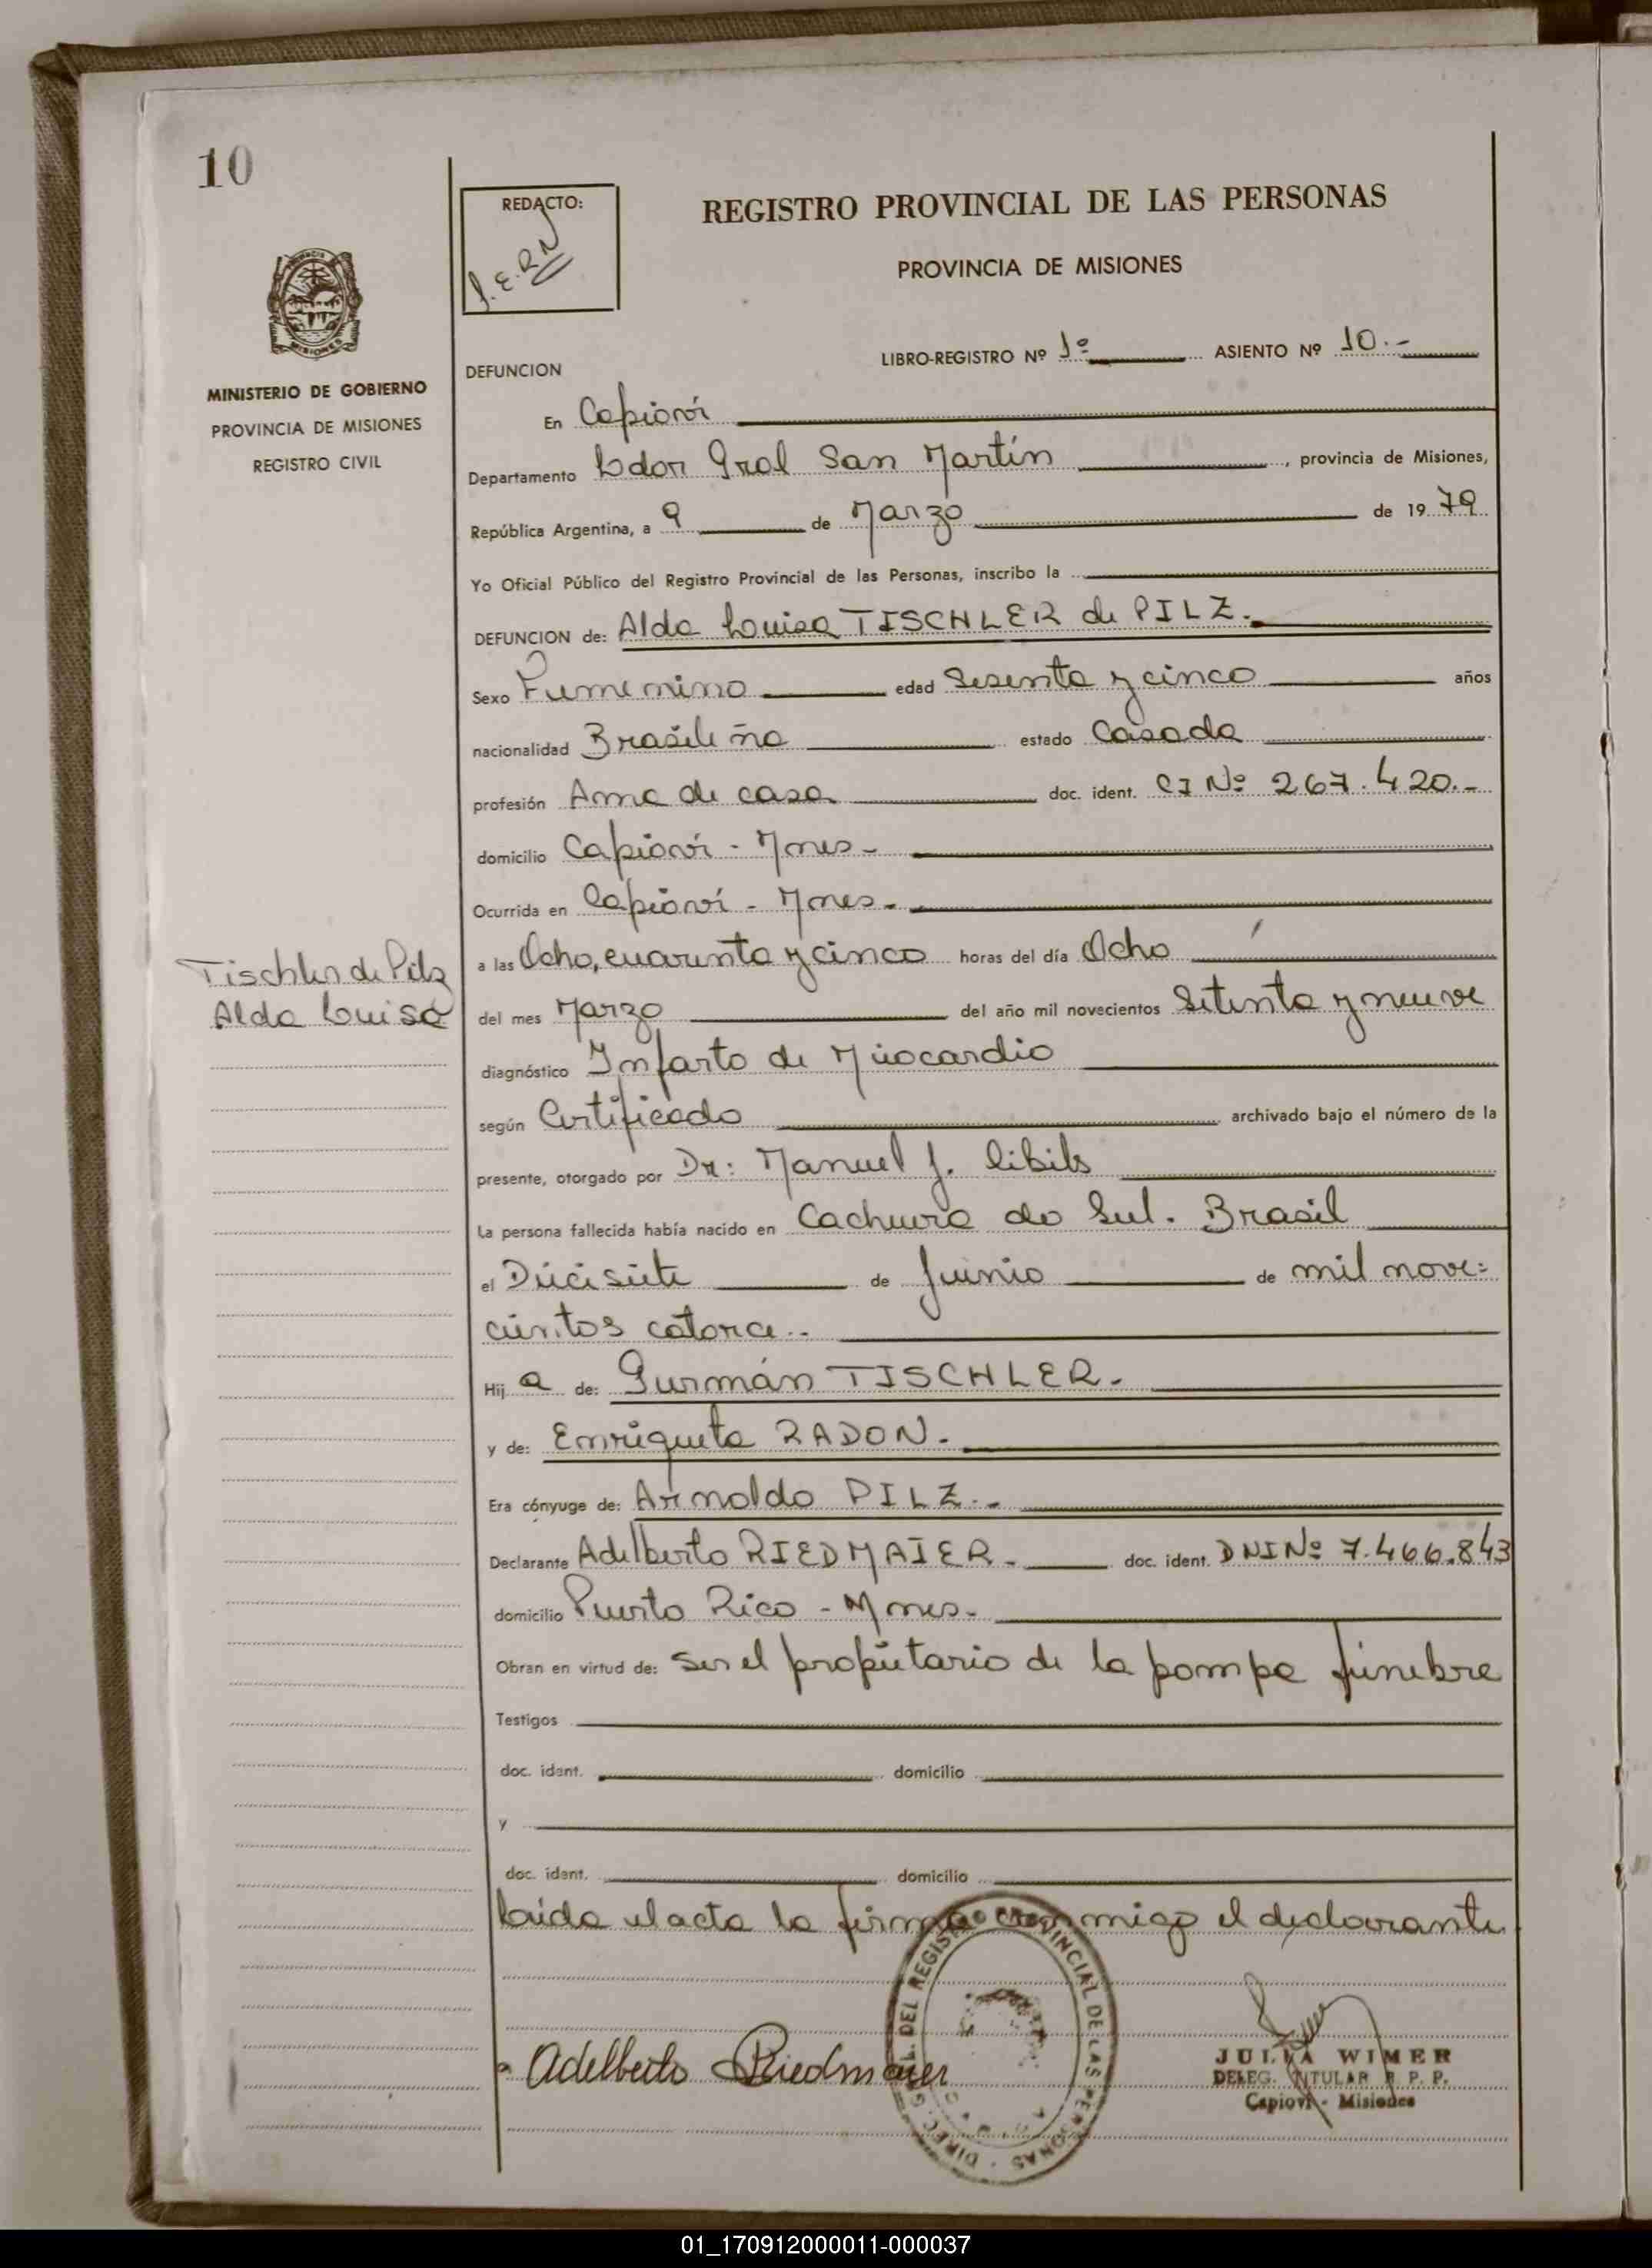 10
REDACTO:
J.E.R.N
REGISTRO PROVINCIAL DE LAS PERSONAS
PROVINCIA DE MISIONES
MISIONES
MINISTERIO DE GOBIERNO
PROVINCIA DE MISIONES
REGISTRO CIVIL
LIBRO-REGISTRO Nº 1º ASIENTO Nº 10.-
DEFUNCION
En Capioví
Departamento Ldor Gral San Martín, provincia de Misiones,
República Argentina, a 9 de Marzo de 1979
Yo Oficial Público del Registro Provincial de las Personas, inscribo la
DEFUNCION de: Alda Louisa TISCHLER de PILZ.-
Sexo Femenino edad Sesenta y cinco años
nacionalidad Brasileña estado Casada
profesión Ama de casa doc. ident. CI Nº 267.420.-
domicilio Capioví - Mnes-
Ocurrida en Capioví - Mnes-
Tischler de Pilz
Alda Louisa
a las Ocho, cuarenta y cinco horas del día Ocho
del mes Marzo del año mil novecientos Setenta y nueve
diagnóstico Infarto de Miocardio
según Certificado archivado bajo el número de la
presente, otorgado por Dr: Manuel J. Libils
La persona fallecida había nacido en Cachueira do Sul. Brasil
el Diecisiete de Junio de mil nove=
cientos catorce..
Hij a de: Germán TISCHLER.
y de: Enriqueta RADON.
Era cónyuge de: Arnoldo PILZ..
Declarante Adelberto RIEDMAIER. doc. ident. DNI Nº 7.466.843
domicilio Puerto Rico - Mnes-
Obran en virtud de: Ser el propietario de la pompa fúnebre
Testigos
doc. ident. domicilio
y
doc. ident. domicilio
Leida el acta la firma conmigo el declarante
DIREC. GRAL. DEL REGISTRO PROVINCIAL DE LAS PERSONAS
Adelberto Riedmaier
JULIA WIMER
DELEG. TITULAR R. P. P.
Capioví - Misiones
01_170912000011-000037